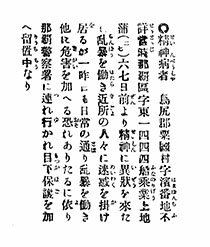 ◎精神病者 島尻郡粟國村字濱番地不
詳當時那覇區字東一四四四船乘業上地
蒲(三七)六七日前より精神に異狀を來た
し亂暴を働き近所の人々に迷惑を掛け
居るが一昨も日常の通り亂暴を働き
他に危害を加へる恐れあるに依り
那覇警察署に連れ行かれ目下保護を加
へ留置中なり